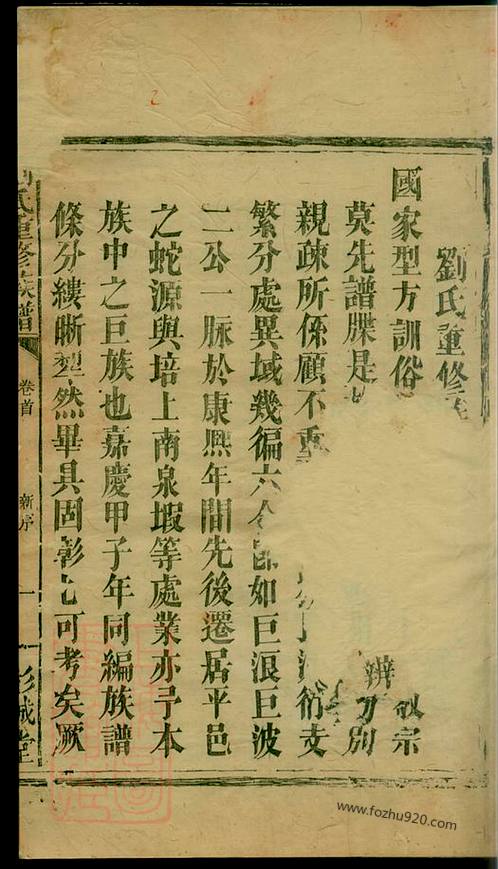 劉氏重修
國家型方訓俗宗
莫先譜牒是辨別
親疎所係顧不重衍支
繁分處異域幾徧六如巨浪巨波
二公一脉於康熙年間先後遷居平邑
之蛇源與培上南泉塅等處業亦予本
族中之巨族也嘉慶甲子年同編族譜
條分縷晰犁然畢具固彰彰可考矣厥
氏重修族譜
卷首
新序
一
彭城堂
www.fozhu920.com